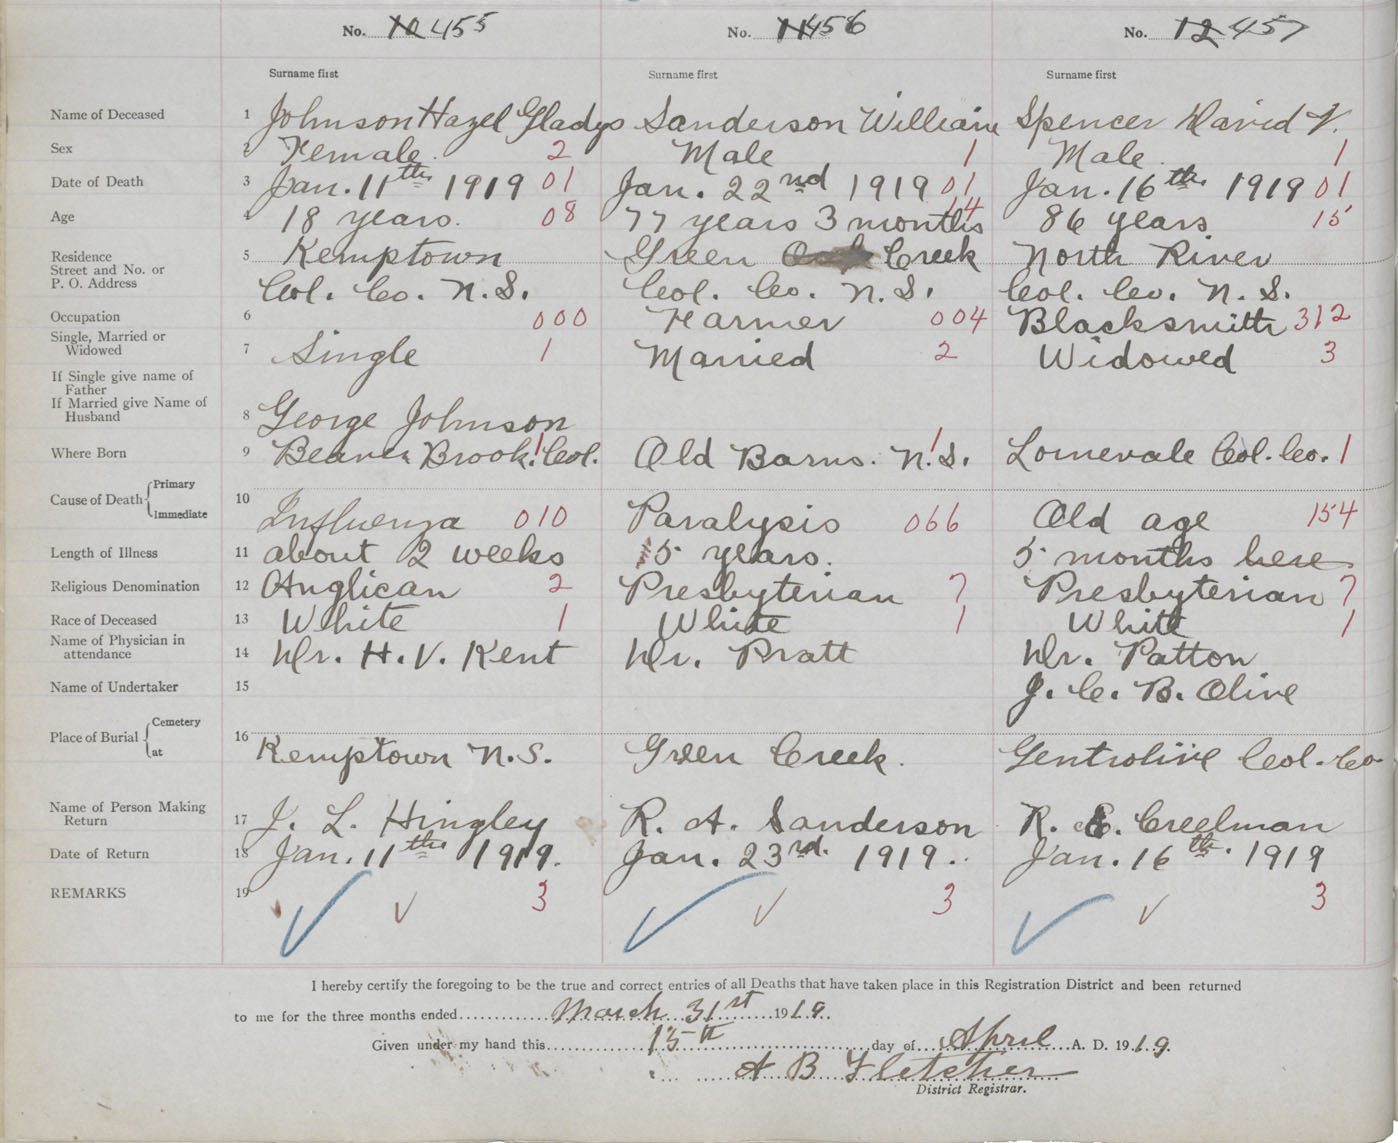 No. 10 455 No. 11 456 No. 12 457
Surname first Surname first Surname first
Name of Deceased 1 Johnson Hazel Gladys Sanderson William Spencer David V.
Sex 2 Female. 2 Male 1 Male. 1
Date of Death 3 Jan. 11th 1919 01 Jan. 22nd 1919 01 Jan. 16th 1919 01
Age 4 18 years. 08 77 years 3 months 14 86 years 15
Residence 5 Kemptown Green Creek North River
Street and No. or
P. O. Address Col. Co. N.S. Col. Co. N.S. Col. Co. N.S.
Occupation 6 000 Farmer 004 Blacksmith 312
Single, Married or
Widowed 7 Single 1 Married 2 Widowed 3
If Single give name of
Father
If Married give Name of
Husband 8 George Johnson
Where Born 9 Beaver Brook. Col. 1 Old Barns. N.S. 1 Lornevale Col. Co. 1
Cause of Death { Primary
Immediate 10 Influenza 010 Paralysis 066 Old age 154
Length of Illness 11 about 2 weeks 5 years. 5 months here
Religious Denomination 12 Anglican 2 Presbyterian 7 Presbyterian 7
Race of Deceased 13 White 1 White 1 White 1
Name of Physician in
attendance 14 Dr. H. V. Kent Dr. Pratt Dr. Patton
Name of Undertaker 15 J. C. B. Olive
Place of Burial { Cemetery
at 16 Kemptown N.S. Green Creek. Col. Co
Name of Person Making
Return 17 J. L. Hingley R. A. Sanderson R. E. Creelman
Date of Return 18 Jan. 11th 1919. Jan. 23rd. 1919. Jan. 16th. 1919
REMARKS 19 3 3 3
I hereby certify the foregoing to be the true and correct entries of all Deaths that have taken place in this Registration District and been returned
to me for the three months ended March 31st 1919.
Given under my hand this 15th day of April A. D. 1919.
A B Fletcher
District Registrar.